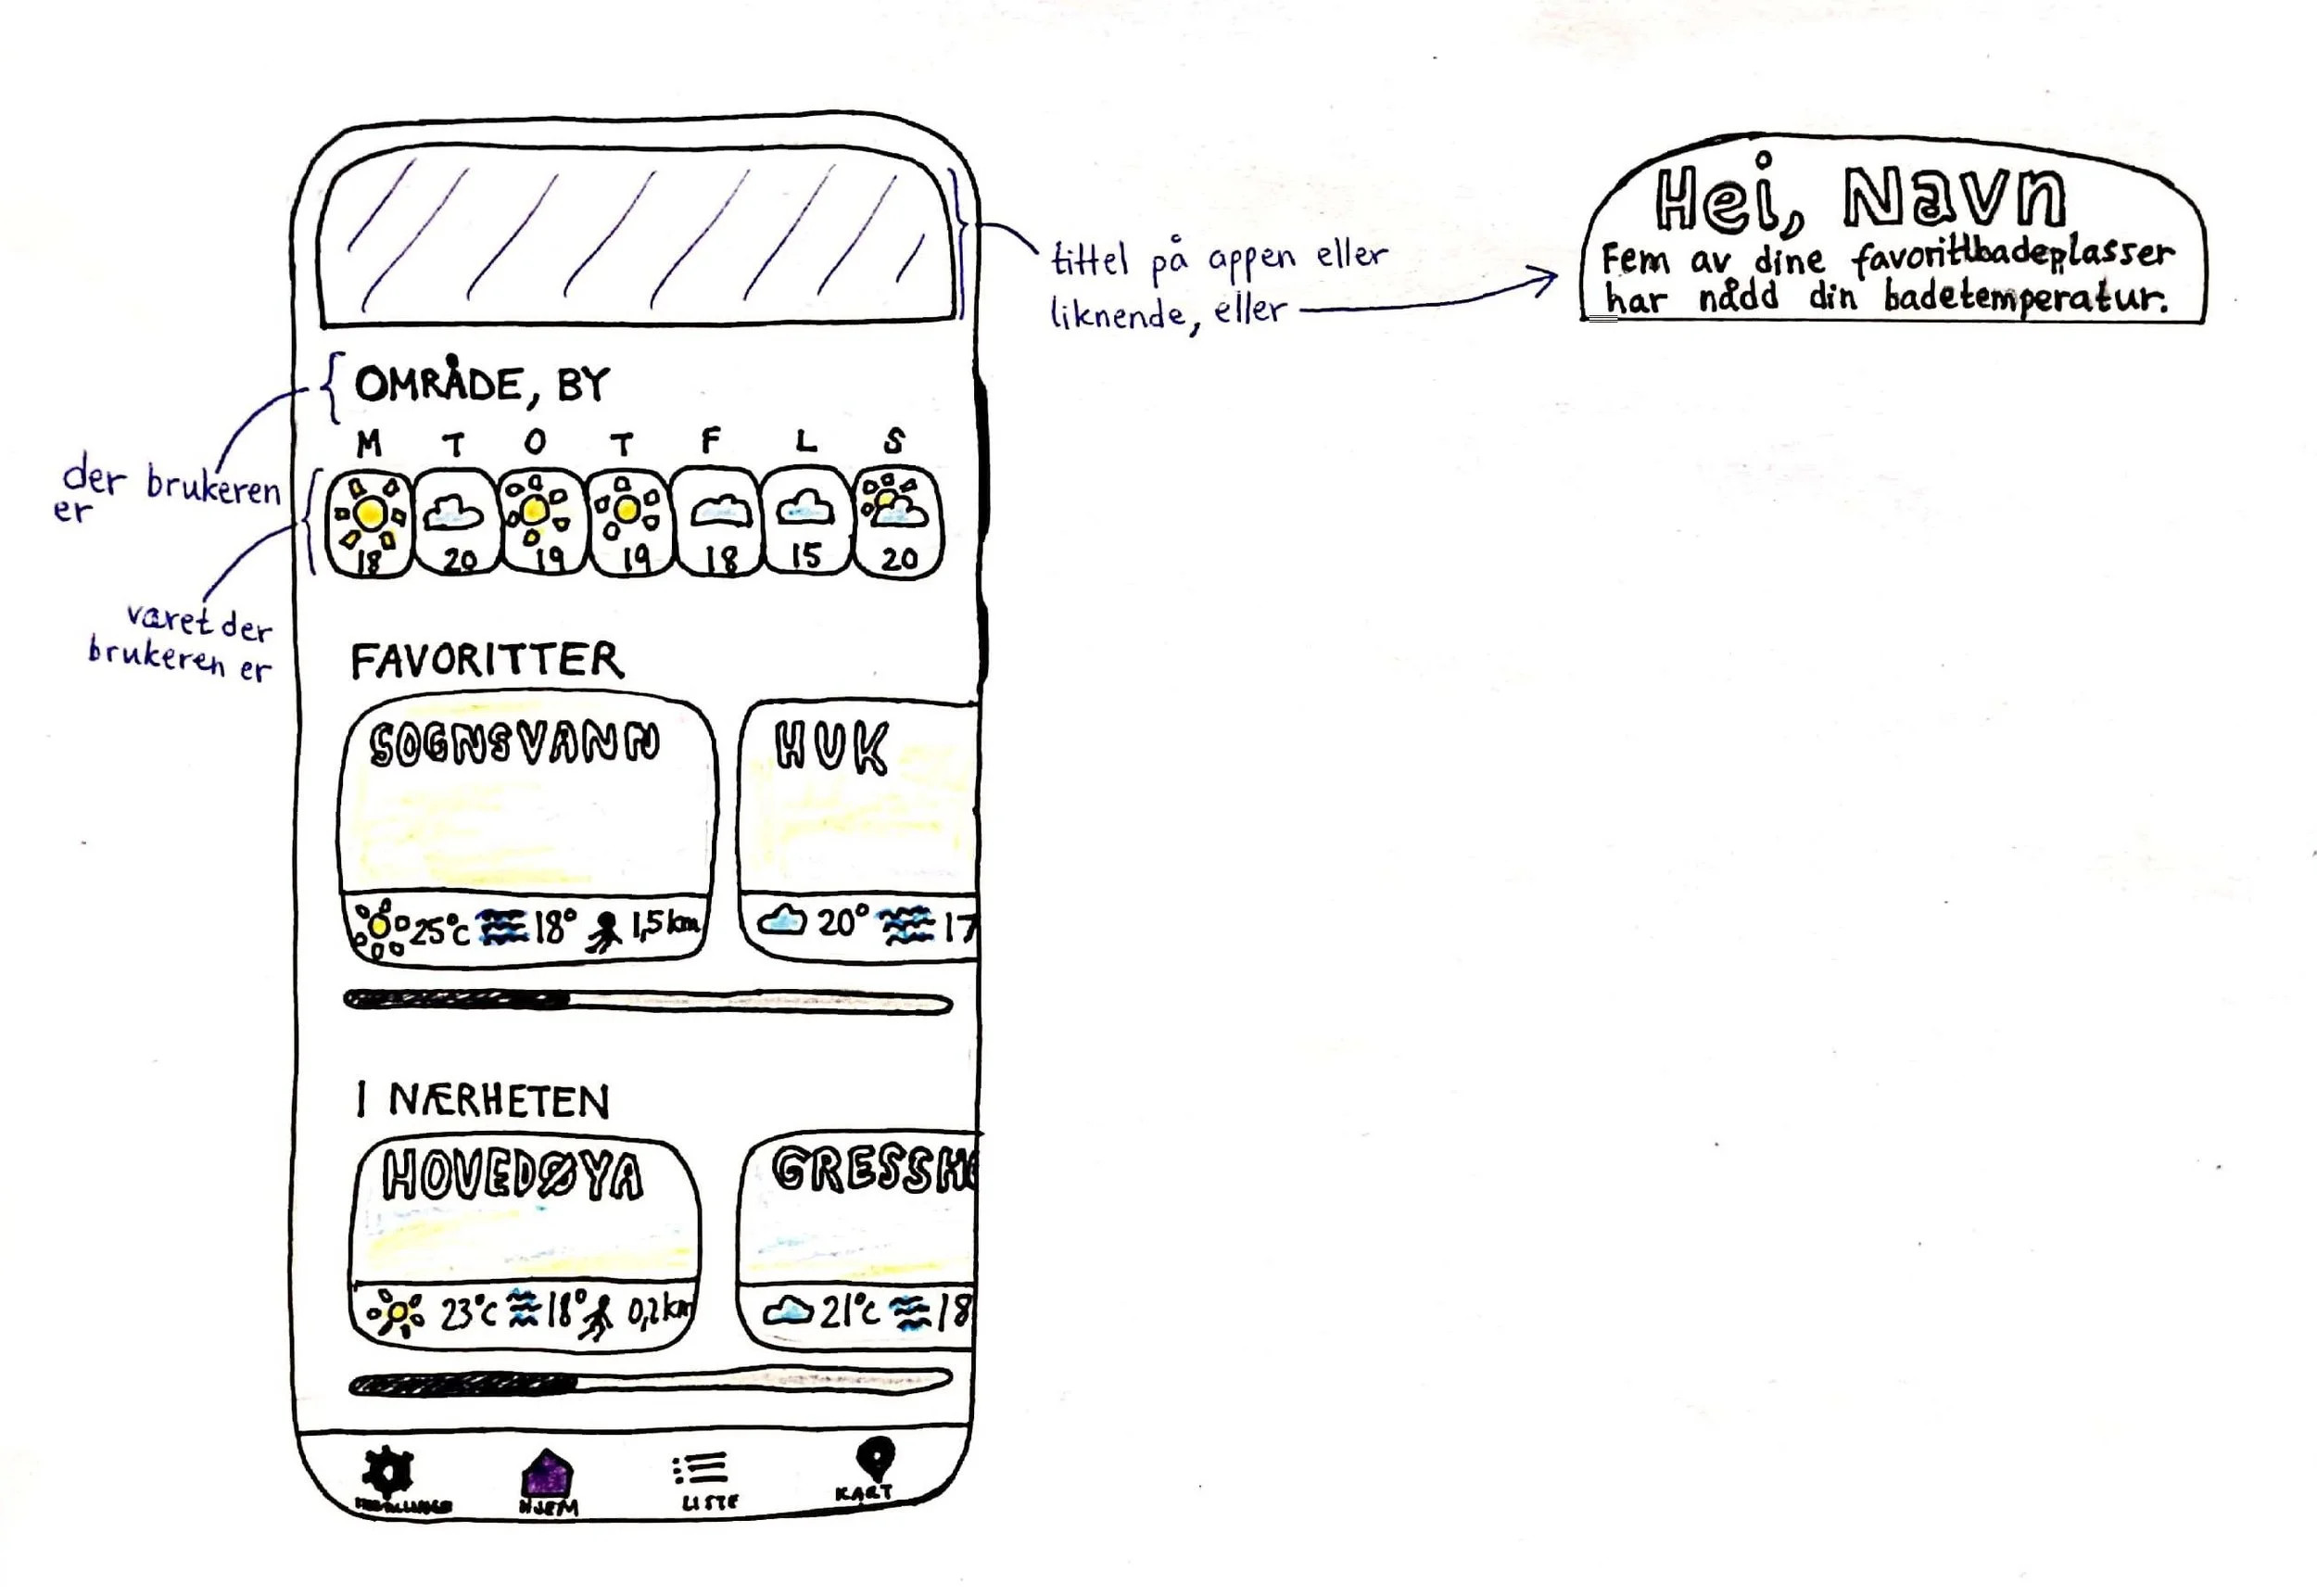 Hei, Navn
Fem av dine favorittbadeplasser
har nådd din badetemperatur.
tittel på appen eller
liknende, eller
OMRÅDE, BY
der brukeren
er
M T O T F L S
18 20 19 19 18 15 20
været der
brukeren er
FAVORITTER
SOGNSVANN HUK
25°C 18° 1,5km 20° 17
I NÆRHETEN
HOVEDØYA GRESSHO
23°C 18° 0,2km 21°C 18
HJEM LISTE KART